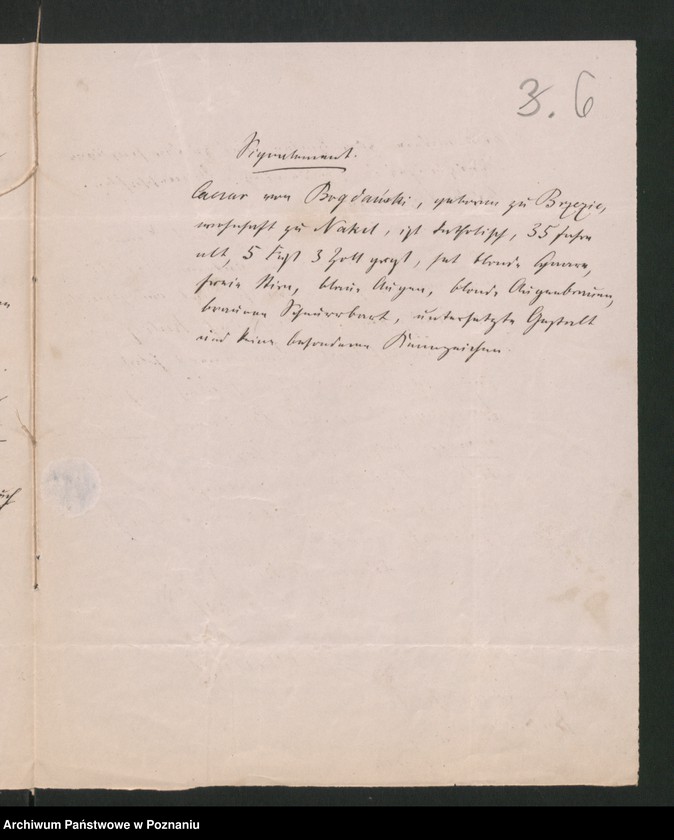 3. 6
Signalement.
Caesar von Bogdański, geboren zu Brzezie,
wohnhaft zu Nakel, ist katholisch, 35 Jahre
alt, 5 Fuß 3 Zoll groß, hat blonde Haare,
freie Stirn, blaue Augen, blonde Augenbrauen,
braunen Schnurrbart, untersetzte Gestalt
und keine besonderen Kennzeichen.
Archiwum Państwowe w Poznaniu